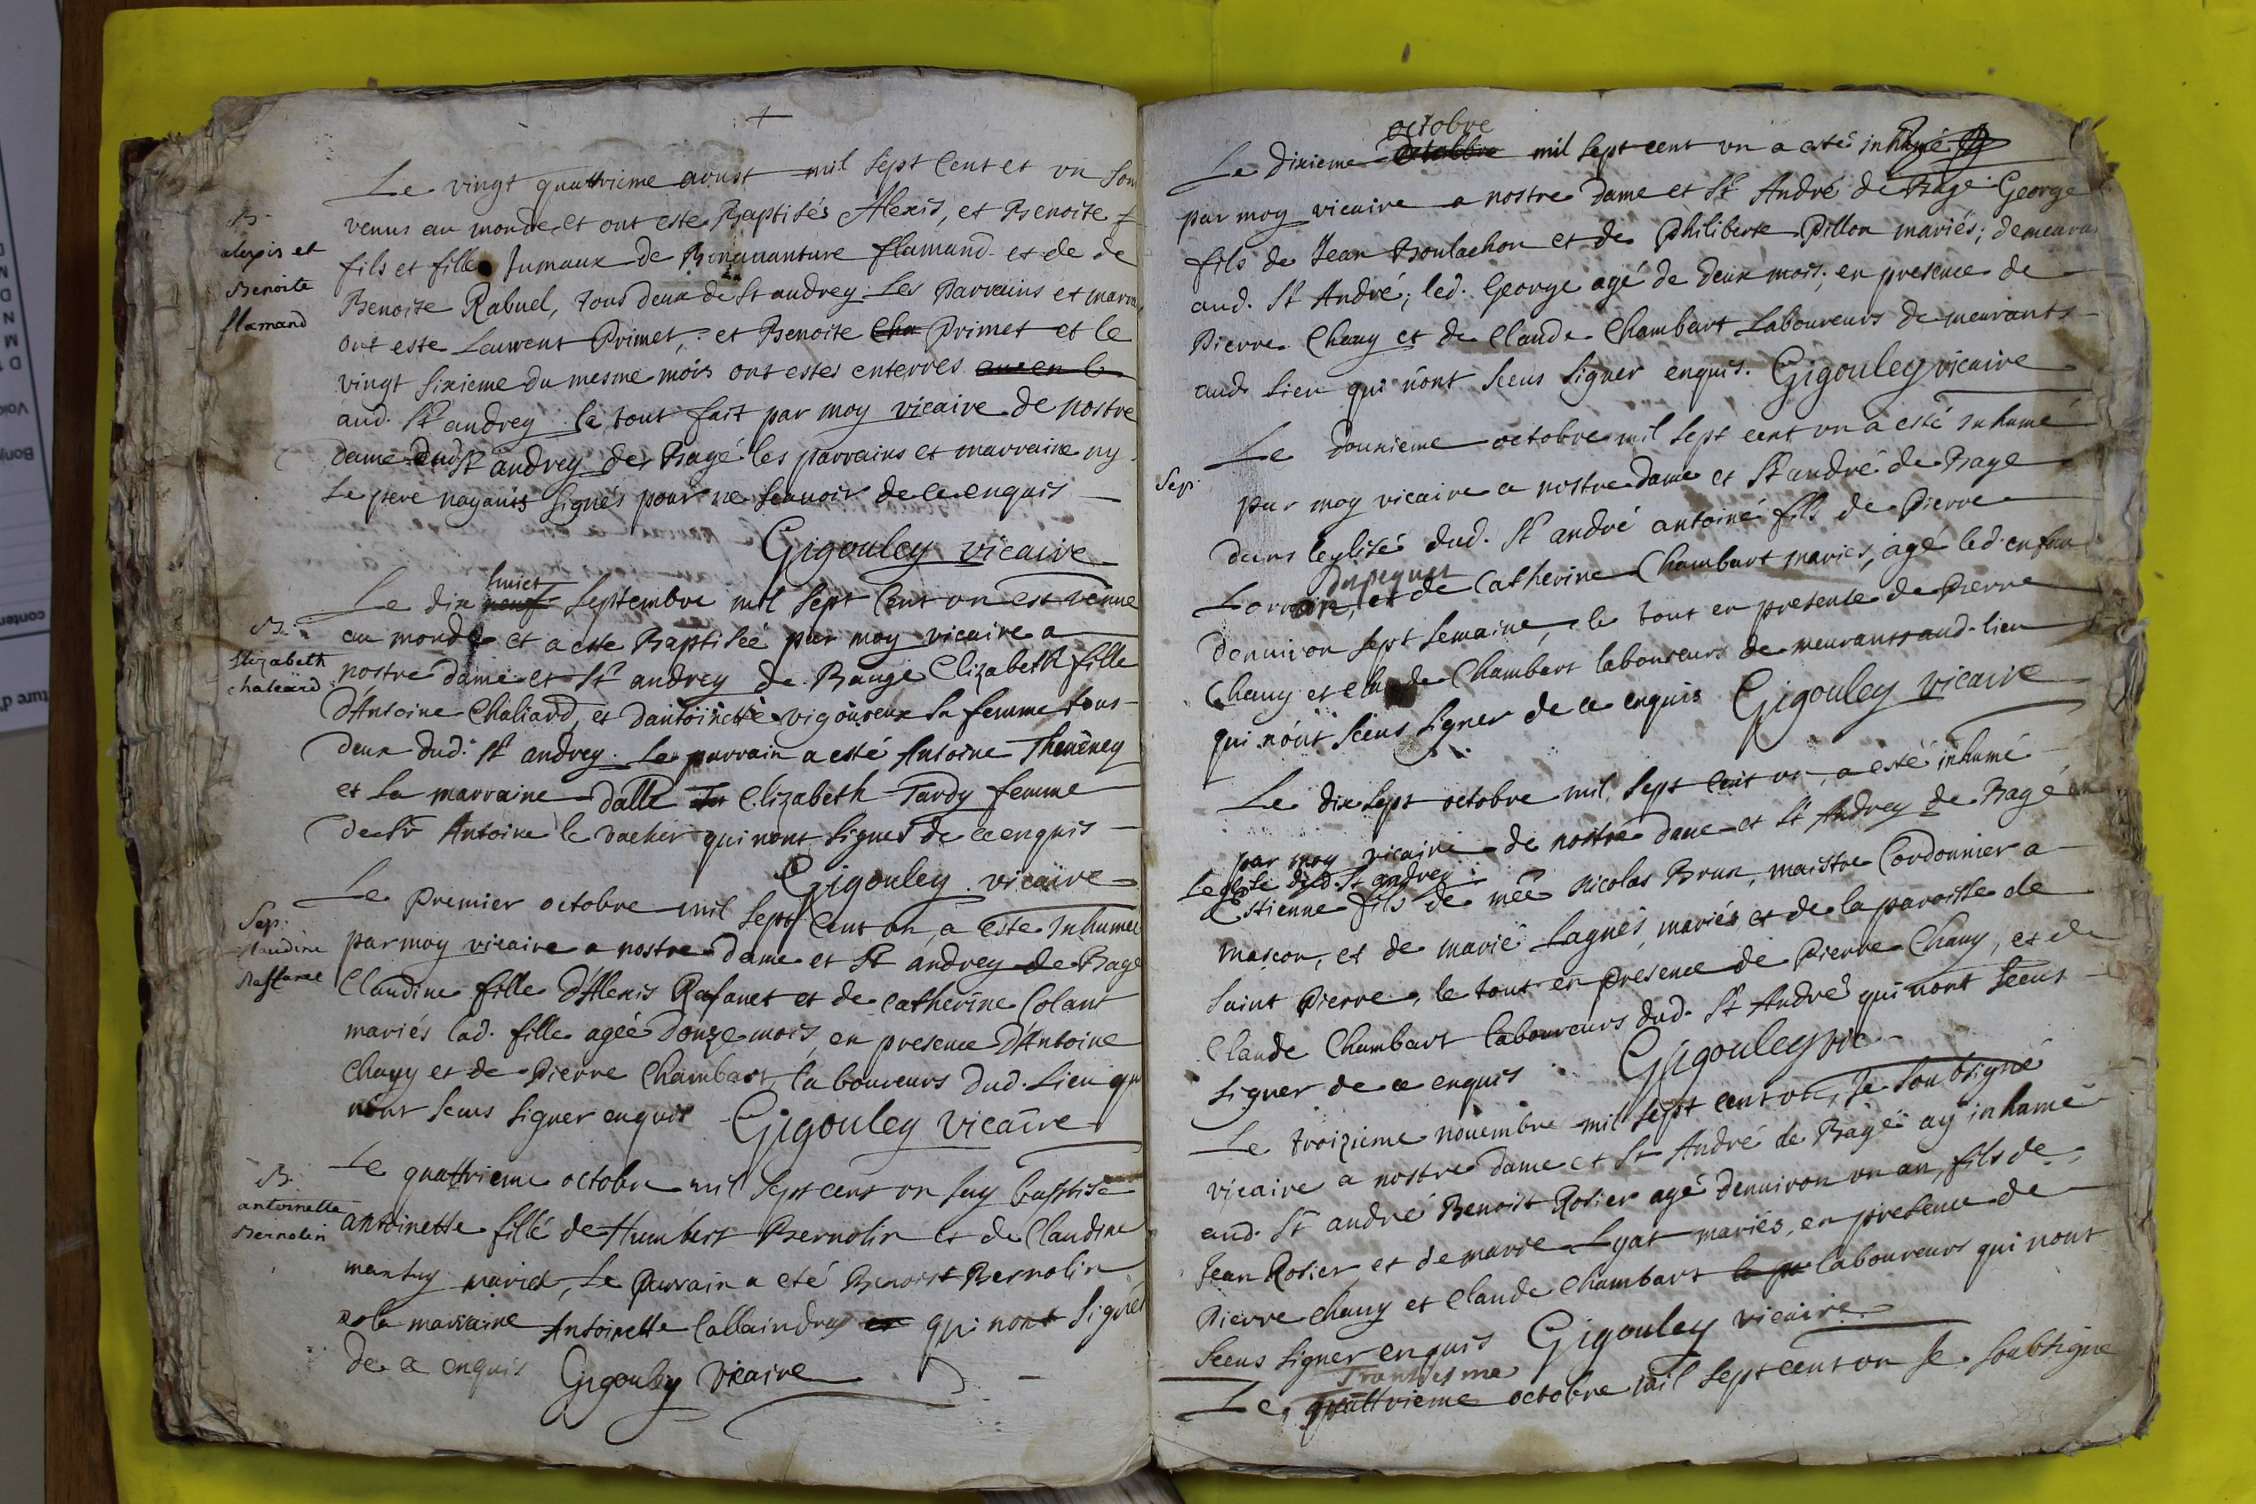 Le vingt quattrieme avust mil sept Cent et vn son
venus au monde, et ont este Baptisés Alexis, et Benoite
B.
alexis et
Benoite
flamand
fils et fille Jumaux de Bonauanture flamand et de de
Benoite Rabuel, tous deux de St andrey. Les Parrains et marra
ont este Laurent Primet, et Benoite Cha Primet et le
vingt sixieme du mesme mois ont estes enterres
aud. St andrey. le tout fait par moy vicaire de nostre
dame St andrey de Bagé les parrains et marraine ny
Le pere nayants signés pour ne scauoir de ce enquis
Gigouley vicaire
Le dix neuf huict Septembre mil sept Cent vn est venue
au monde et a este Baptisée par moy vicaire a
B.
Elizabeth
chaliard
nostre dame et St andrey de Baugé Elizabeth fille
d'Antoine Chaliard, et dantoinette vigoureux sa femme tous
deux dud. St andrey. Le parrain a esté Antoine Theueney
et La marraine dalle Elizabeth Tardy femme
de Sr Antoine le vacher qui nont signes de ce enquis
Gigouley vicaire
Le Premier octobre mil sept Cent vn, a este Inhumée
Sep:
Claudine
Raffanet
par moy vicaire a nostre Dame et St andrey de Bagé
Claudine fille d'Alexis Rafanet et de catherine Colant
mariés lad. fille agée donze mois, en presence d'Antoine
Chauy et de Pierre Chambart, laboureurs dud. Lieu qu
nont sceus signer enquis Gigouley vicaire
Le quattrieme octobre mil sept cens vn fuy baptisé
B.
antoinette
Bernolin
antoinette fille de Humbert Bernolin et de Claudine
mariés, Le Parrain a eté Benoist Bernolin
et la marraine Antoinette Callaindray et qui nont signés
de ce enquis Gigouley vicaire
octobre
Le dixieme mil sept cent vn a esté inhumé
par moy vicaire a nostre dame et St André de Bagé George
fils de Jean Boulachon et de Philiberte Pillon mariés; demeura
aud. St André; led. George agé de deux mois; en presence de
Pierre Chauy et de Claude Chambart Laboureurs demeurants
aud. Lieu qui n'ont sceus signer enquis. Gigouley vicaire
Le dounieme octobre mil sept cent vn a esté Inhumé
Sep:
par moy vicaire a nostre dame et St andré de Bage
dans leglise dud. St andré antoine fils de Pierre
dupequer
Lorrain, et de Catherine Chambart maries, agé led. enfan
denuiron sept semaine, le tout en presence de Pierre
Chauy et Claude Chambart laboureurs demeurants aud. lieu
qui n'ont sceus signer de ce enquis Gigouley vicaire
Le dix sept octobre mil sept Cent vn, a esté inhumé
par moy vicaire de nostre dame et St Andrey de Bagé en
Leglise dud. St andrey
Estienne fils de mée Nicolas Brun, maistre Cordonnier a
mascon, et de marie Lagnés, mariés, et de la paroisse de
saint Pierre, le tout en presence de Pierre Chauy, et de
Claude Chambart laboureurs dud. St André qui nont sceus
signer de ce enquis Gigouley vic
Le troizieme nouembre mil sept cent vn, Je soubsigné
vicaire a nostre dame et St André de Bagé ay inhumé
aud. St andré Benoist Rosier agé denuiron vn an, fils de
Jean Rosier et de marie Lyat mariés, en presence de
Pierre Chauy et Claude Chambart laboureurs qui nont
sceus signer enquis Gigouley vicaire
Le, quattrieme octobre mil sept cent vn Je soubsigne